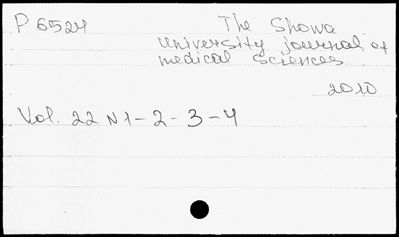 P 6524 The Showa
university journal of
medical sciences
2010
Vol. 22 N 1-2-3-4